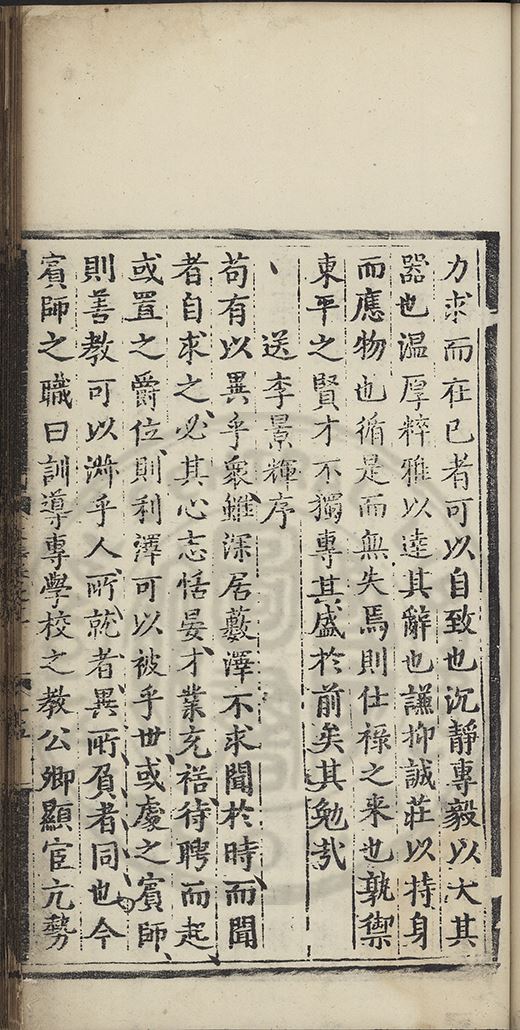 力求而在已者可以自致也沉靜專毅以大其
器也温厚粹雅以逹其辭也謙抑誠莊以持身
而應物也循是而無失焉則仕祿之来也孰禦
東平之賢才不獨專其盛扵前矣其勉㢤
送李景輝序
苟有以異乎衆雖深居藪澤不求聞於時而聞
者自求之必其心志恬晏才業充裕待聘而起
或置之爵位則利澤可以被乎世或處之賓師
則善教可以淑乎人所就者異所負者同也今
賓師之職曰訓導專學校之教公卿顯宦亢勢